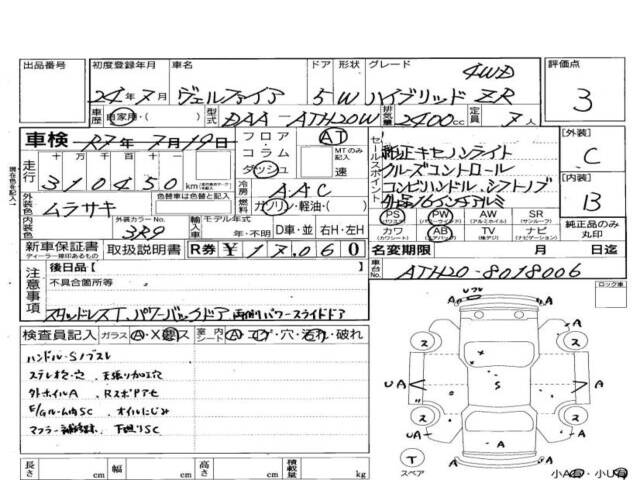 出品番号 初度登録年月 車名 ドア 形状 グレード 評価点
24年7月 ヴェルファイア 5 W ハイブリッド ZR 4WD 3
車歴 自家用・( ) 型式 DAA-ATH20W 排気量 2400cc 定員 7人
車検 R7年7月19日 フロア AT セールスポイント 純正キセノンライト [外装] C
コラム MTのみ記入 クルーズコントロール
走行 310450 km ダッシュ 速 コンビハンドル.シフトノブ [内装] B
外装色 ムラサキ 色替車は色替と記入 冷房 AAC 外品16インチアルミ
燃料 ガソリン・軽油・( ) PS PW AW SR 純正品のみ丸印
内装色 外装カラーNo. 3R9 輸入車 モデル年式 年・不明 D車・並 右H・左H カワ AB TV ナビ
新車保証書 取扱説明書 R券 ¥17,060 名変期限 月 日迄
ディーラー印あるもの
注意事項 後日品[ ] 車台No. ATH20-8018006
不具合箇所等 ロック車
スタッドレスT、パワーバックドア 両側パワースライドドア
検査員記入 ガラス A・X・ス 室内シート A・コゲ・穴・汚れ・破れ
ハンドル・Sノブスレ
ステレオ欠・穴 天張り加工穴
外ホイルA Rスポアセ
E/GルームSC オイルにじみ
下廻りSC
長さ cm 幅 cm 高さ cm 積載量 kg
T スペア 小A有・小U有